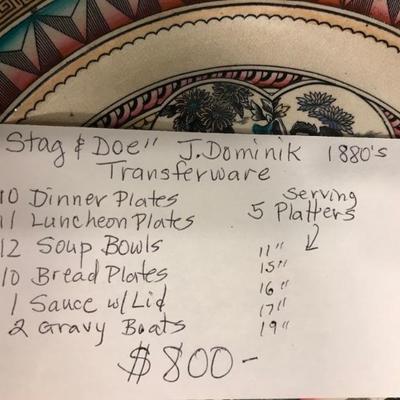 Stag & Doe" J. Dominik 1880's
Transferware
10 Dinner Plates
11 Luncheon Plates
12 Soup Bowls
10 Bread Plates
1 Sauce w/Lid
2 Gravy Boats
Serving
5 Platters
11"
15"
16"
17"
19"
$800-